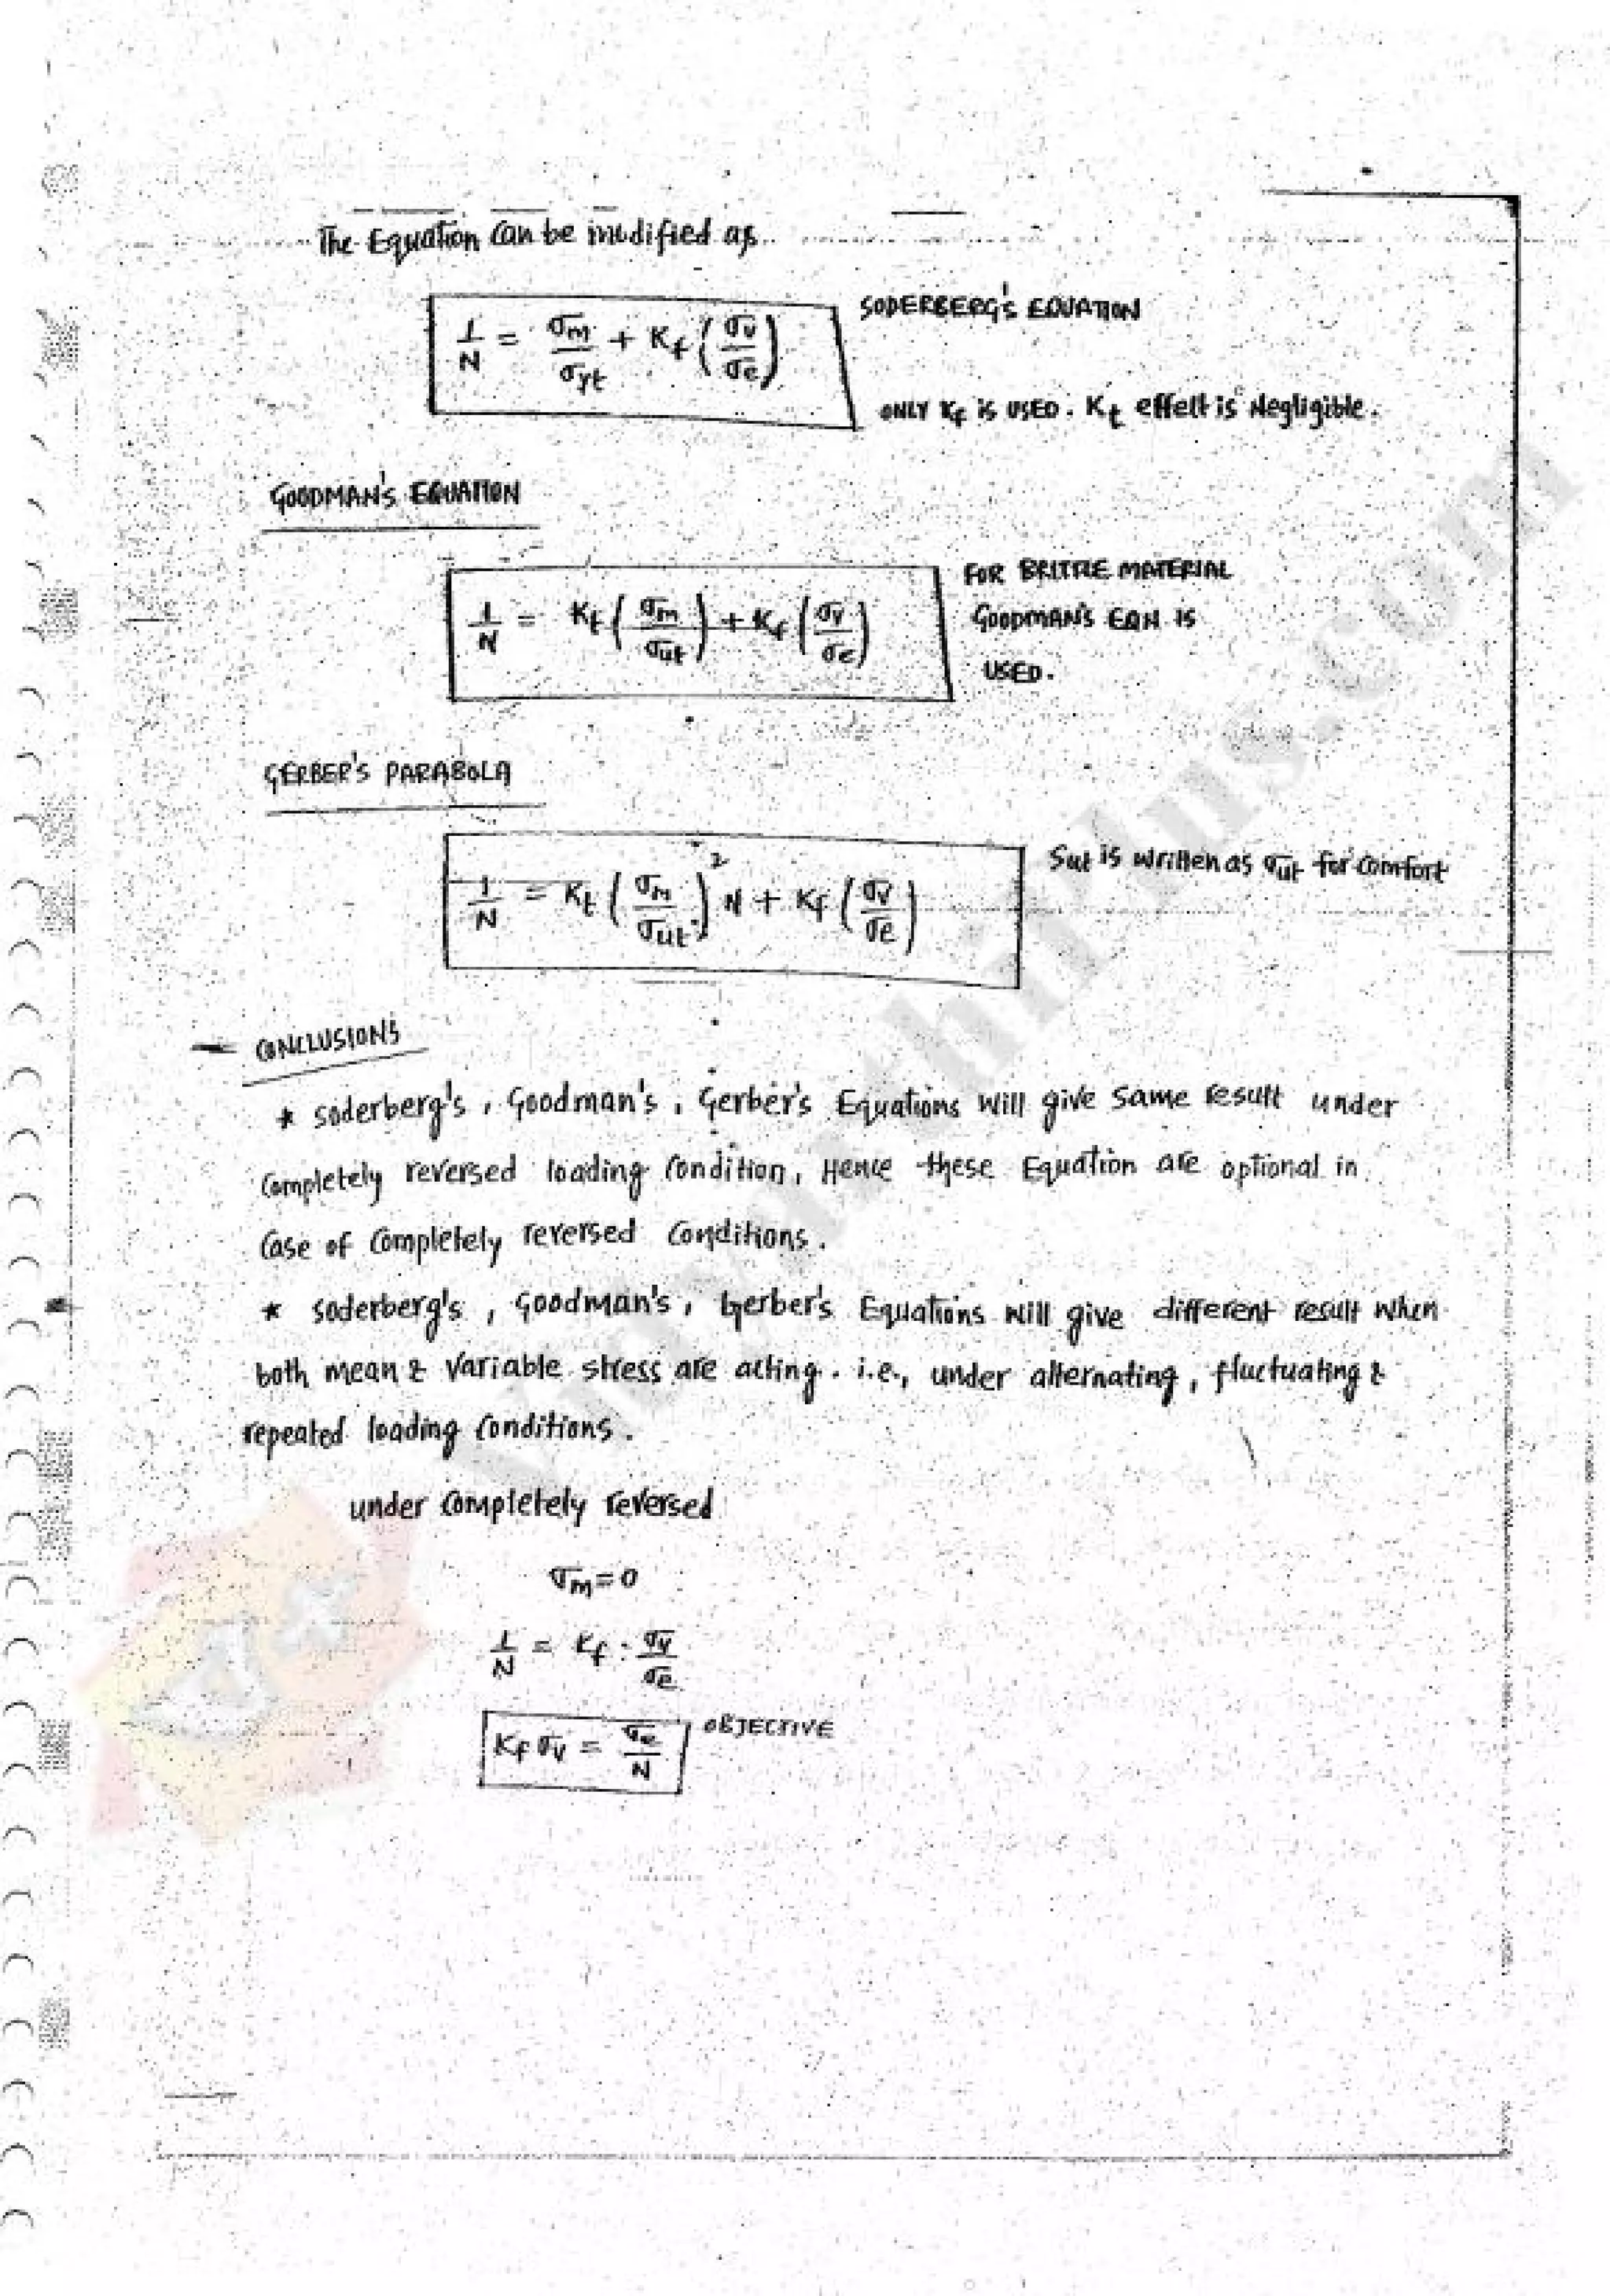 The Equation can be modified as
1/N = σm/σyt + Kf (σv/σe) SODERBERG'S EQUATION
ONLY Kf is USED. Kt effect is Negligible.
GOODMAN'S EQUATION
1/N = Kt (σm/σut) + Kf (σv/σe) FOR BRITTLE MATERIAL
GOODMAN'S EQN IS
USED.
GERBER'S PARABOLA
1/N = Kt (σm/σut)² N + Kf (σv/σe) Sut is written as σut for comfort
CONCLUSIONS
* Soderberg's, Goodman's, Gerber's Equations will give same result under
completely reversed loading condition, Hence these Equation are optional in
Case of completely reversed Conditions.
* Soderberg's, Goodman's, Gerber's Equations will give different result when
both mean & variable stress are acting. i.e., under alternating, fluctuating &
repeated loading Conditions.
under completely reversed
σm = 0
1/N = Kf . σv/σe
Kf σv = σe/N OBJECTIVE